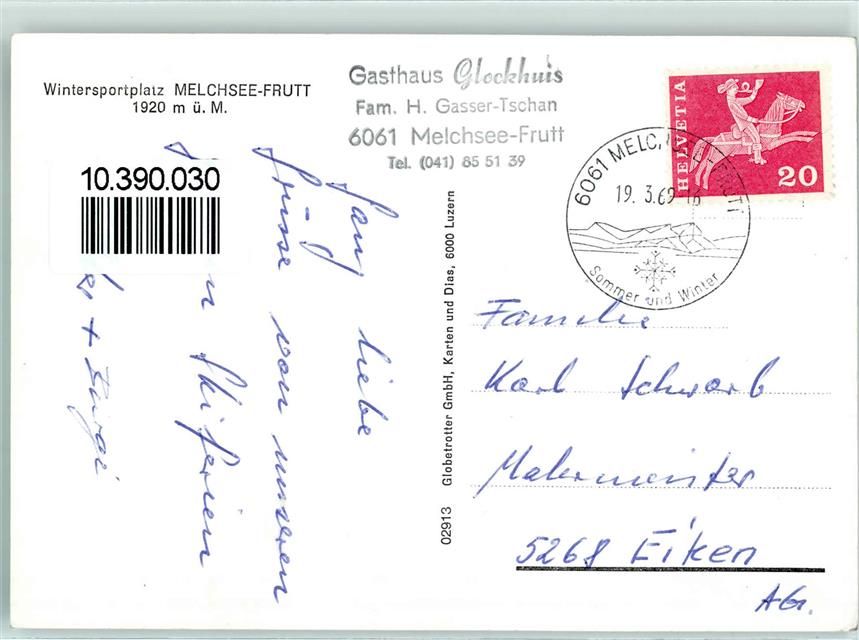 Wintersportplatz MELCHSEE-FRUTT
1920 m ü. M.
Gasthaus Glockhuis
Fam. H. Gasser-Tschan
6061 Melchsee-Frutt
Tel. (041) 85 51 39
HELVETIA
20
6061 MELCHSEE-FRUTT
19. 3.69-18
Sommer und Winter
10.390.030
Ganz liebe
Grüsse von unseren
Skiferien
02913 Globetrotter GmbH, Karten und Dias, 6000 Luzern
Familie
Karl Schwarb
Malermeister
5268 Eiken
AG.